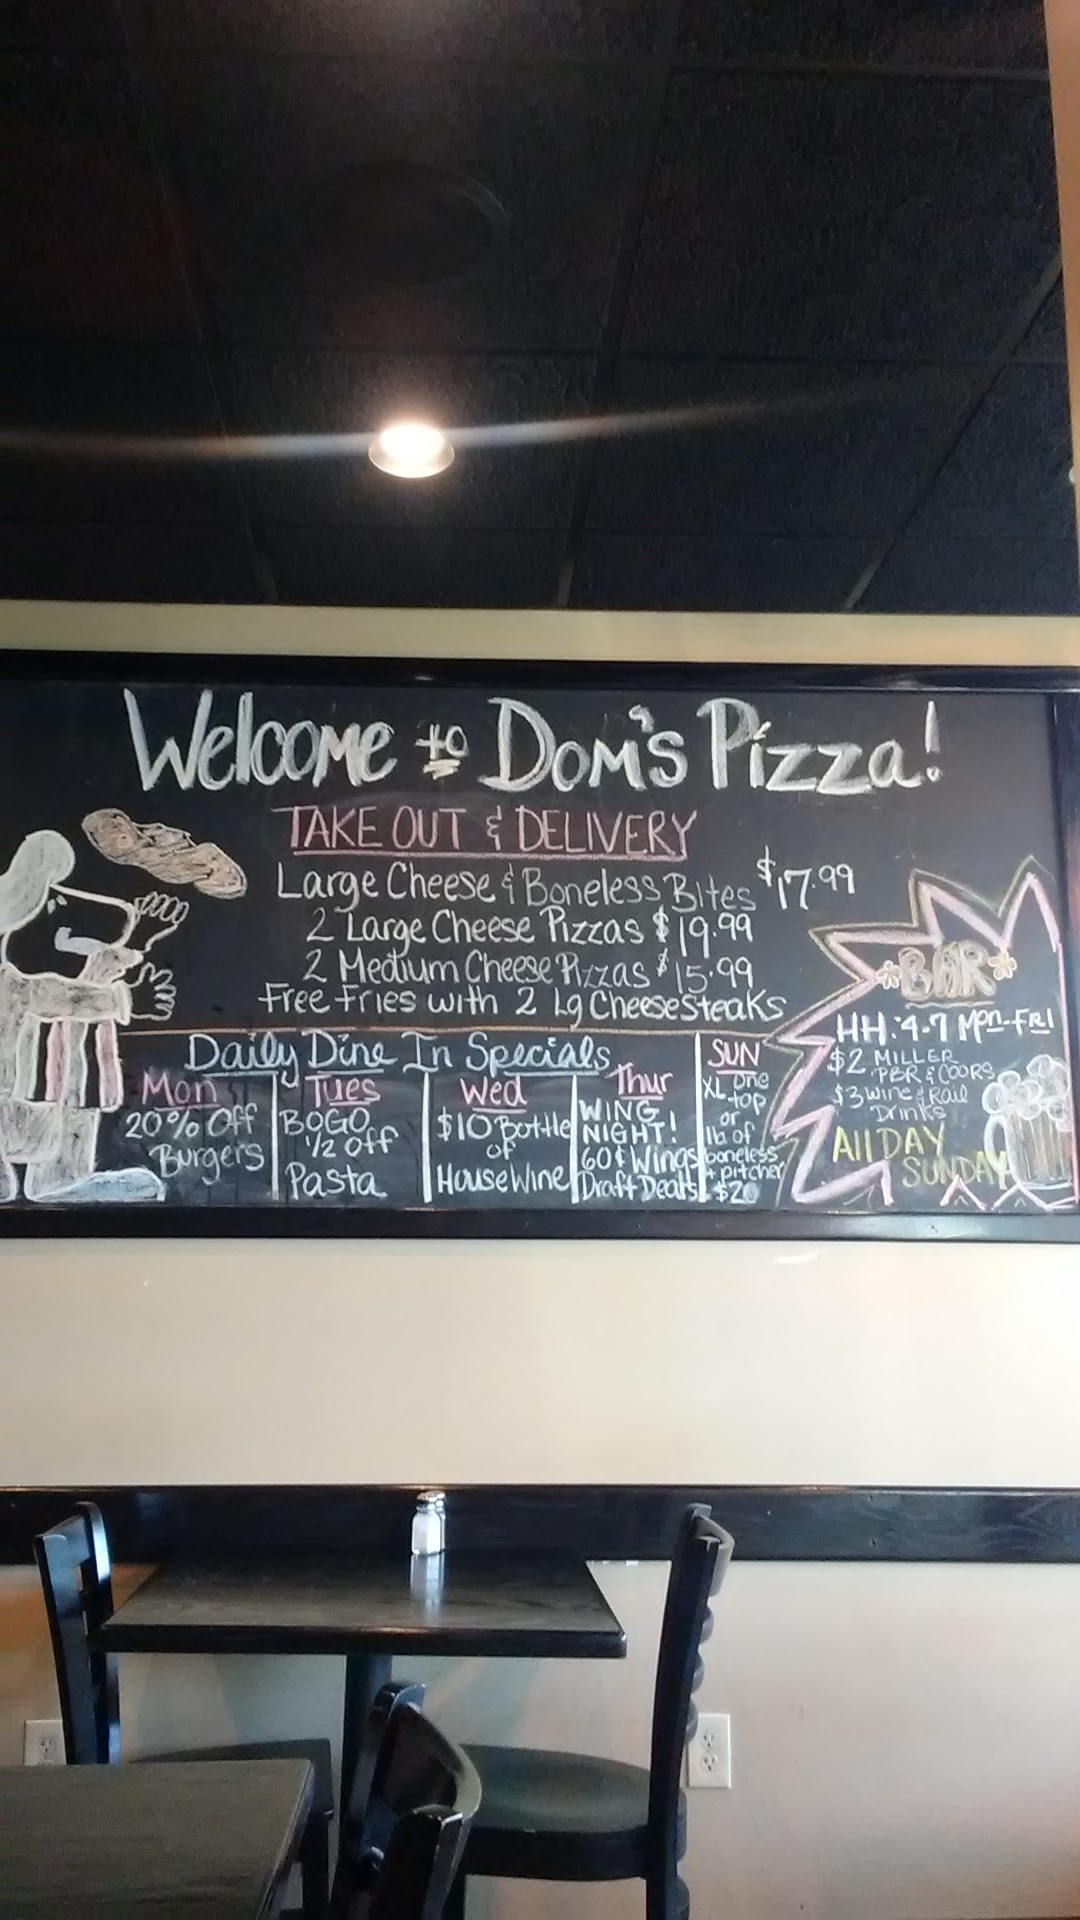 Welcome to Dom's Pizza!
TAKE OUT & DELIVERY
Large Cheese & Boneless Bites $17.99
2 Large Cheese Pizzas $19.99
2 Medium Cheese Pizzas $15.99
Free Fries with 2 Lg Cheesesteaks
Daily Dine In Specials
Mon
20% Off
Burgers
Tues
BOGO
1/2 Off
Pasta
Wed
$10 Bottle
of
House Wine
Thur
WING
NIGHT!
60¢ Wings
Draft Deals
SUN
XL one
top
or
1lb of
boneless
+ pitcher
$20
BAR
HH: 4-7 Mon-Fri
$2 MILLER
PBR & COORS
$3 wine & Rail
Drinks
All DAY
SUNDAY